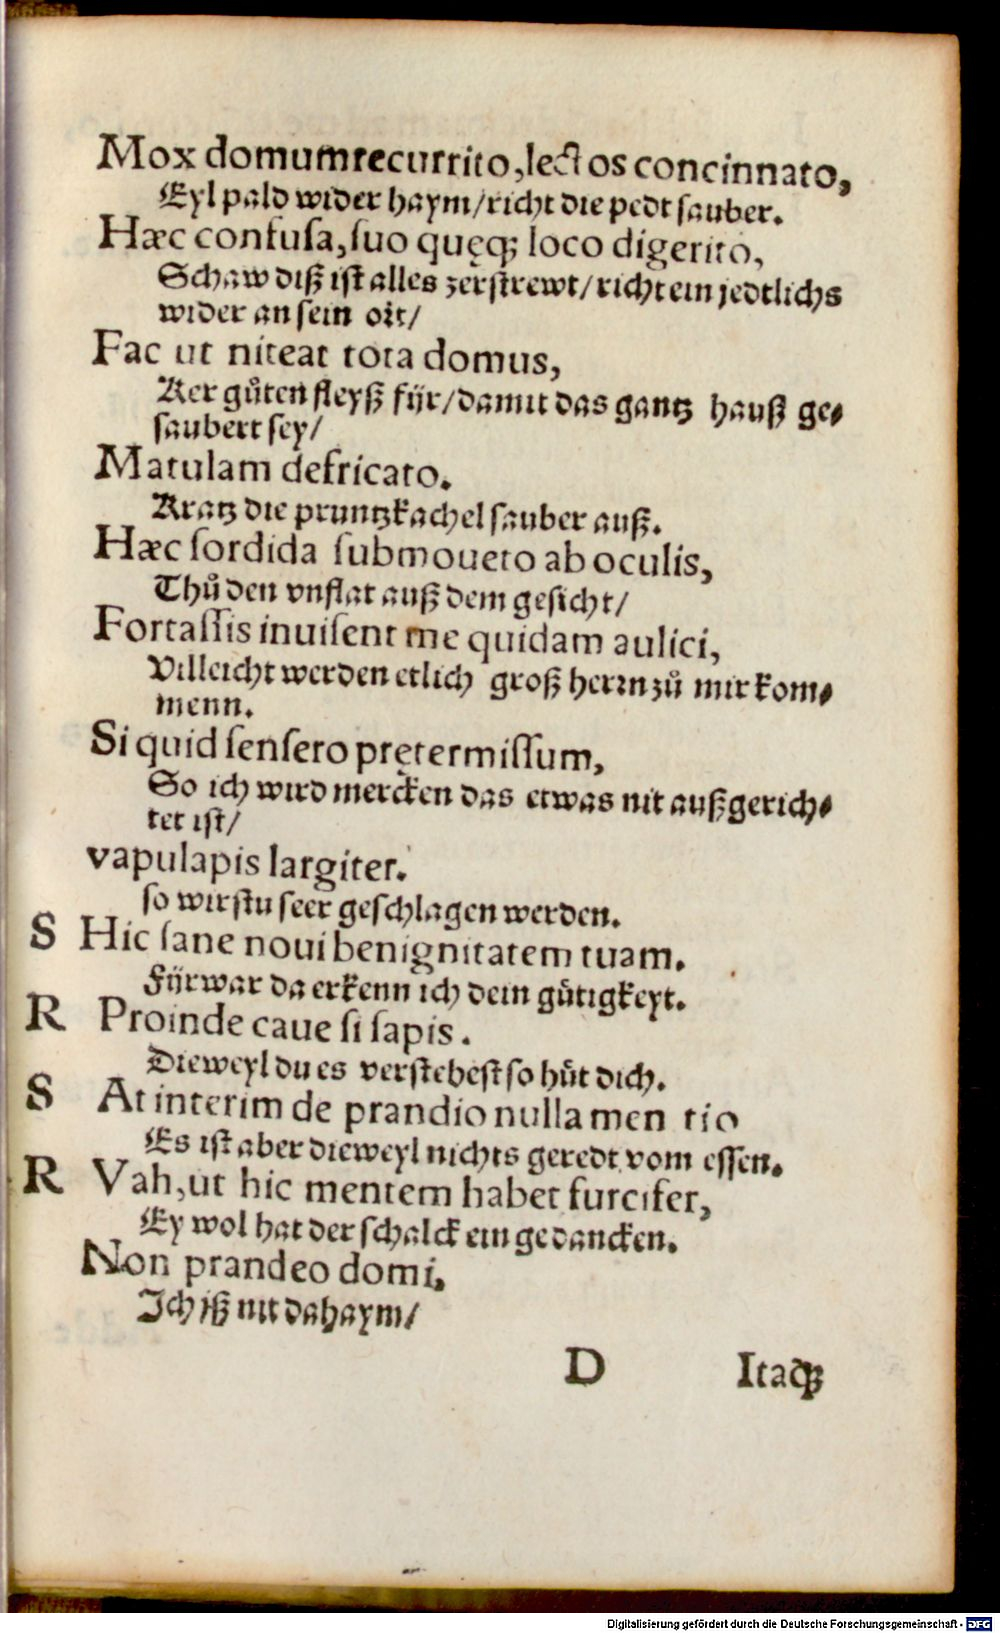 Mox domum recurrito, lectos concinnato,
Eyl pald wider haym/richt die pedt sauber.
Hæc confusa, suo quęq; loco digerito,
Schaw diß ist alles zerstrewt/richt ein jedtlichs
wider an sein ort/
Fac ut niteat tota domus,
Ker gůten fleyß fijr/damit das gantz hauß ge⸗
saubert sey/
Matulam defricato.
Kratz die pruntzkachel sauber auß.
Hæc sordida submoueto ab oculis,
Thů den vnflat auß dem gesicht/
Fortassis inuisent me quidam aulici,
Villeicht werden etlich groß herrn zů mir kom⸗
menn.
Si quid sensero prętermissum,
So ich wird mercken das etwas nit außgerich⸗
tet ist/
vapulapis largiter.
so wirstu seer geschlagen werden.
S Hic sane noui benignitatem tuam.
Fijrwar da erkenn ich dein gůtigkeyt.
R Proinde caue si sapis.
Dieweyl du es verstehest so hůt dich.
S At interim de prandio nulla men tio
Es ist aber dieweyl nichts geredt vom essen.
R Vah, ut hic mentem habet furcifer,
Ey wol hat der schalck ein gedancken.
Non prandeo domi.
Ich iß nit dahaym/
D Itaq;
Digitalisierung gefördert durch die Deutsche Forschungsgemeinschaft - DFG